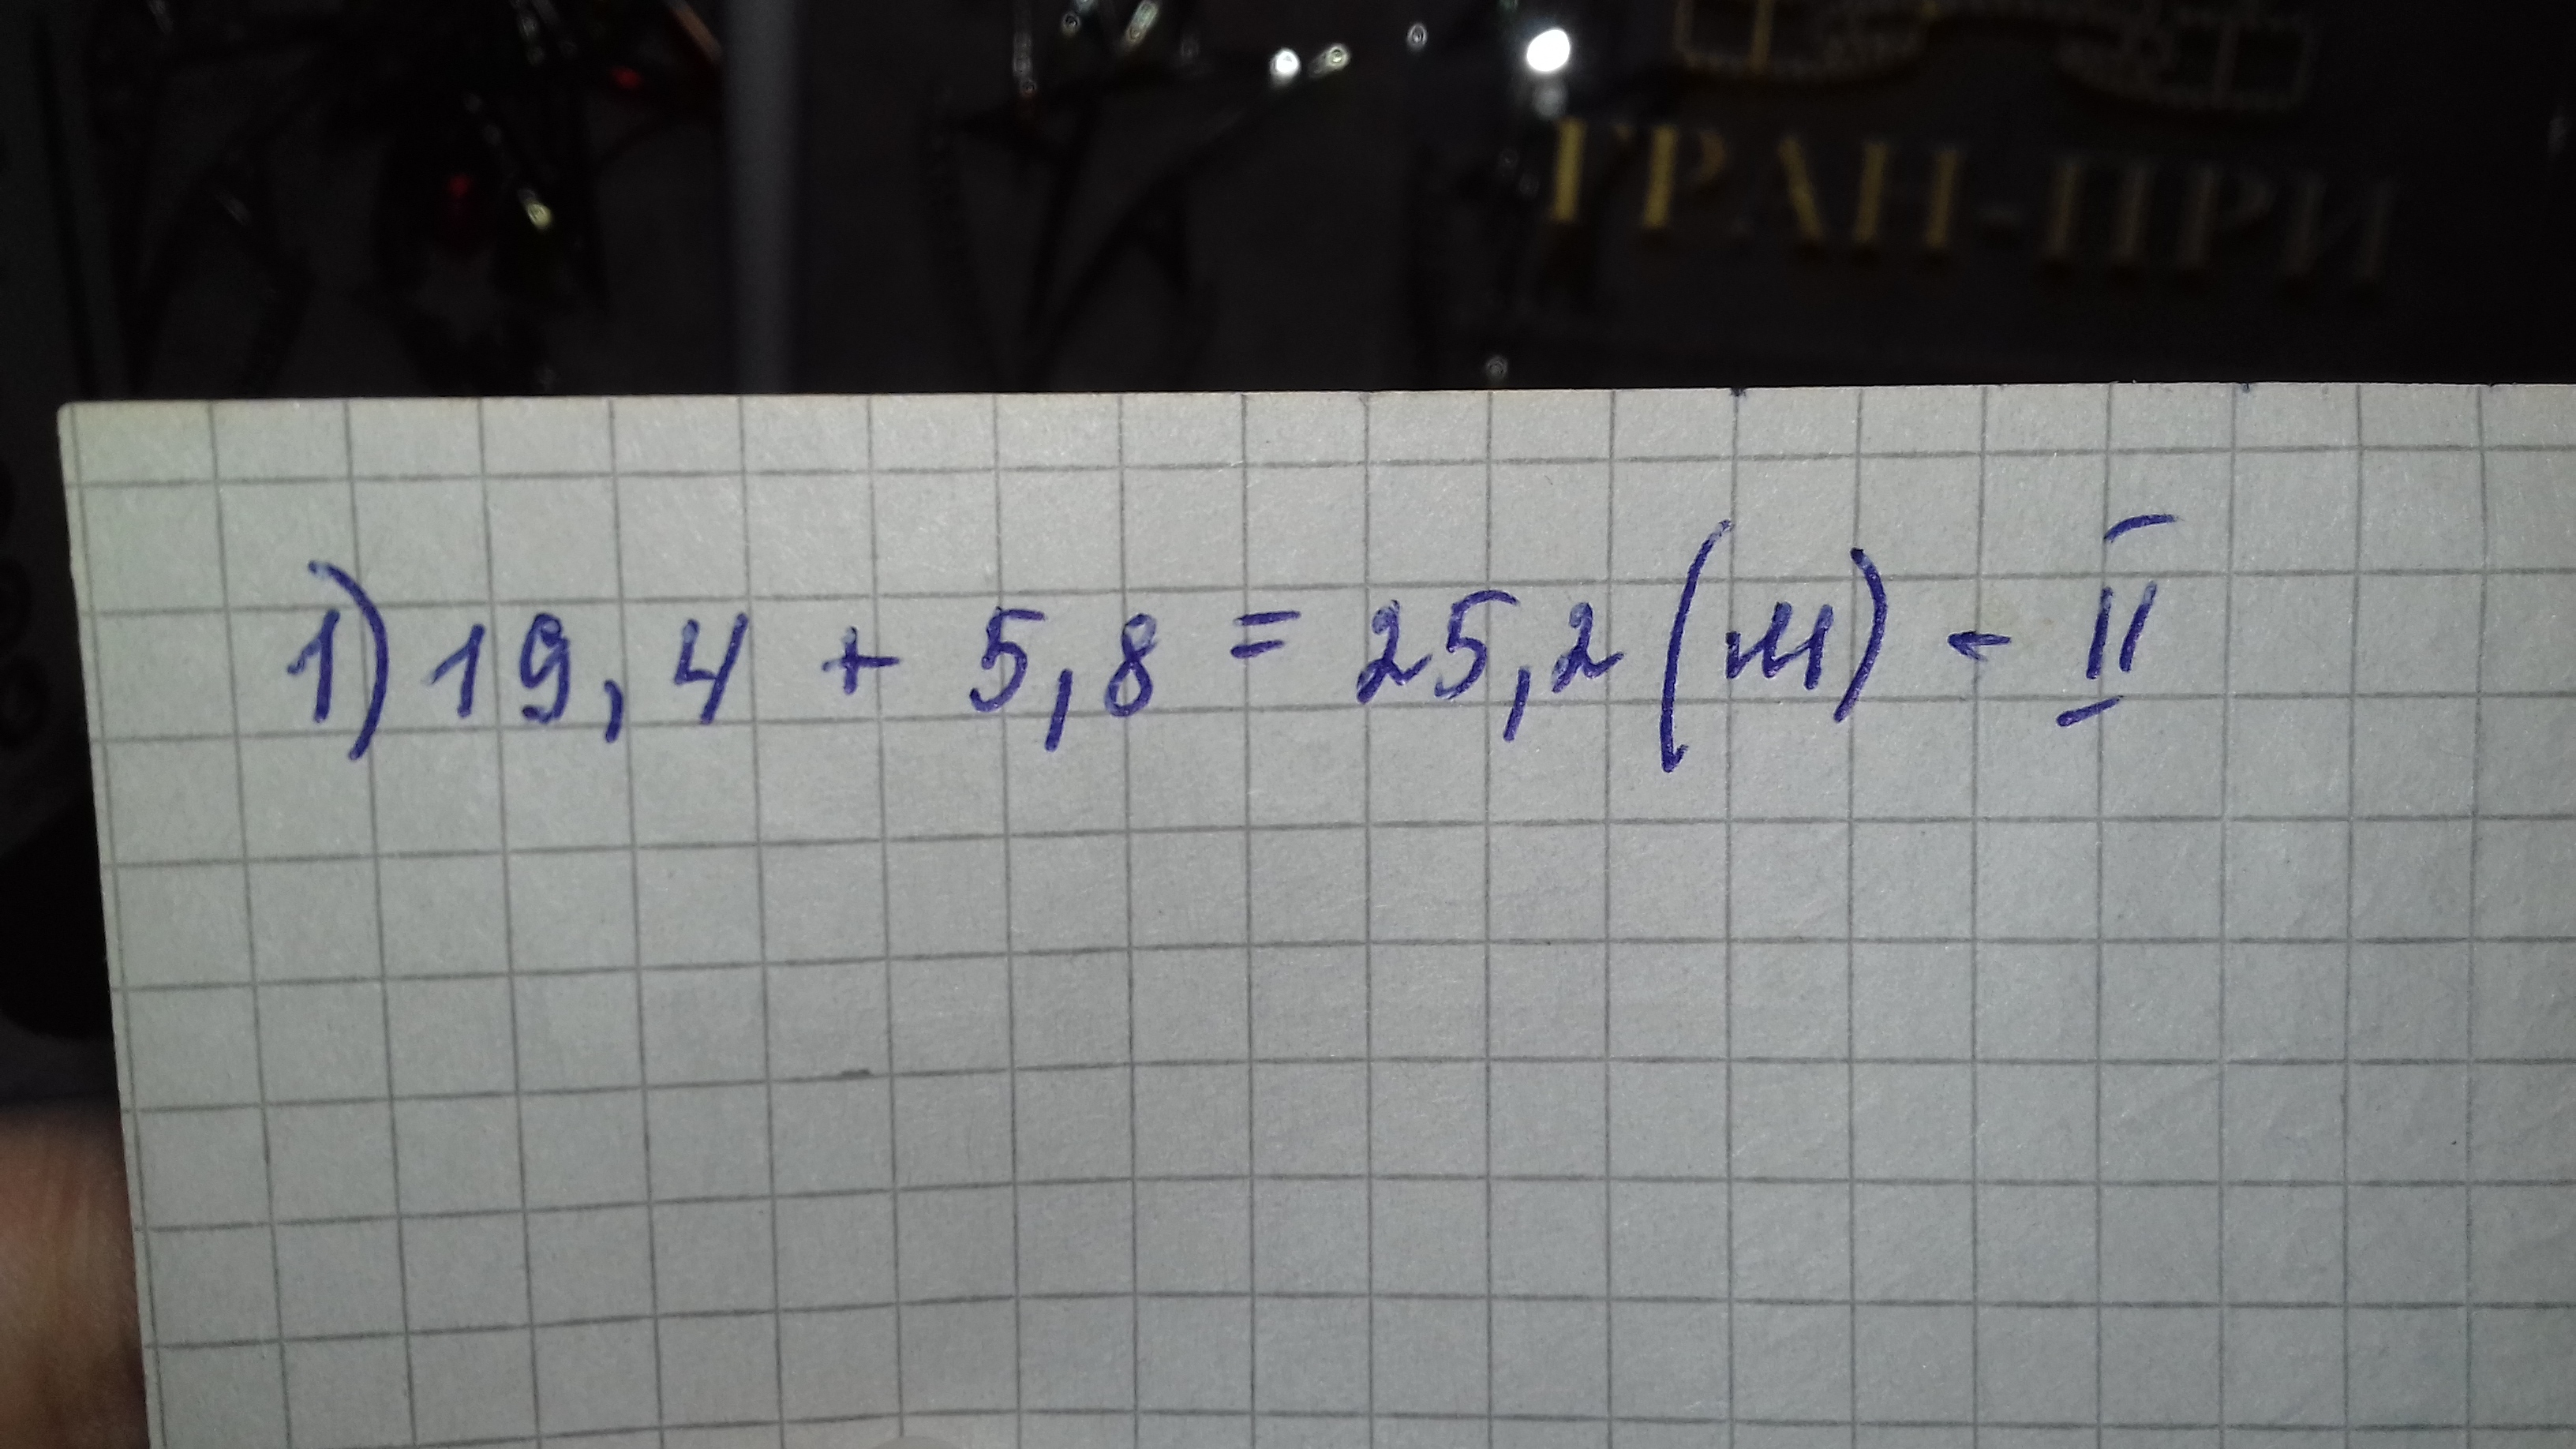 ГРАН-ПРИ
1) 19,4 + 5,8 = 25,2 (м) - II